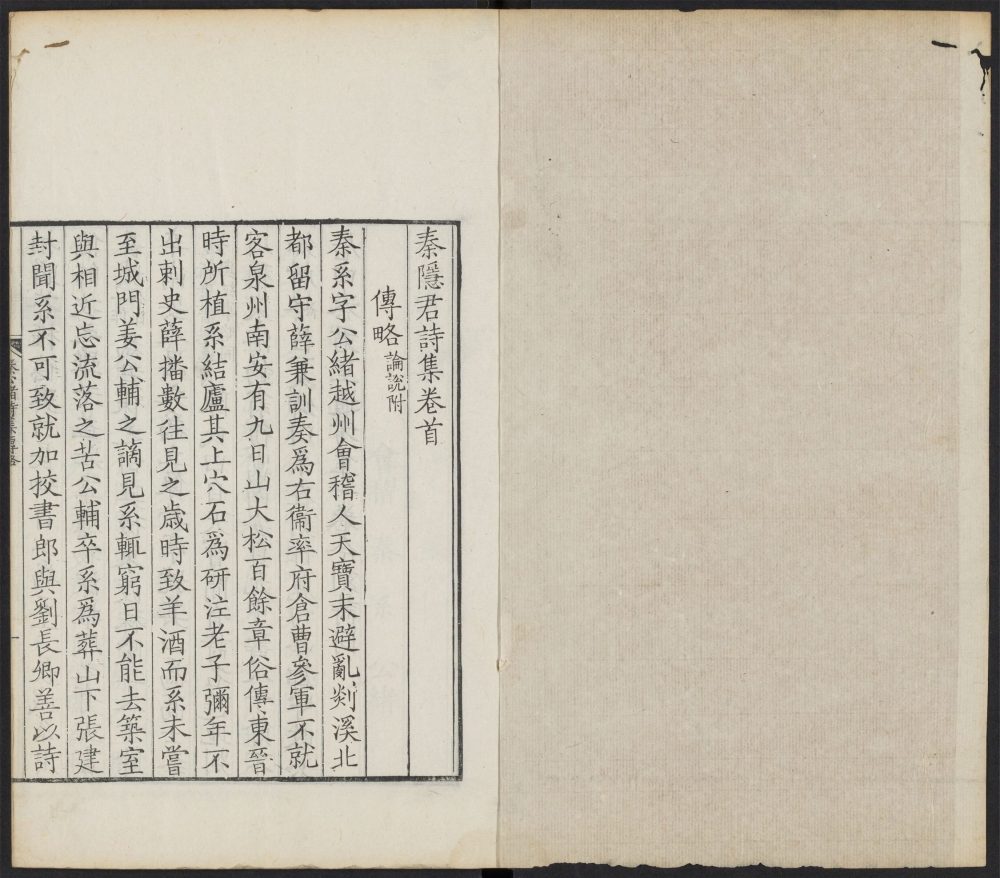 秦隱君詩集卷首
傳略 論說附
秦系字公緒越州會稽人天寶末避亂剡溪北
都留守薛兼訓奏爲右衞率府倉曹參軍不就
客泉州南安有九日山大松百餘章俗傳東晉
時所植系結廬其上穴石爲研注老子彌年不
出刺史薛播數往見之歲時致羊酒而系未嘗
至城門姜公輔之謫見系輒窮日不能去築室
與相近忘流落之苦公輔卒系爲葬山下張建
封聞系不可致就加挍書郎與劉長卿善以詩